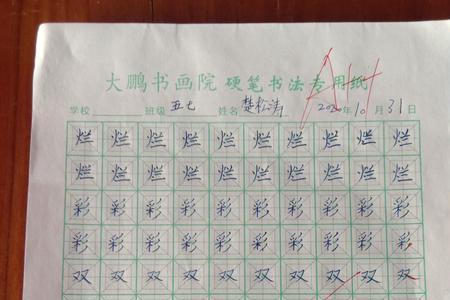 大鹏书画院 硬笔书法专用纸
学校 班级 五七 姓名 楚松涛 2020年10月31日
烂 烂 烂 烂 烂 烂 烂 烂 烂 烂
烂 烂 烂 烂 烂 烂 烂 烂 烂 烂
彩 彩 彩 彩 彩 彩 彩 彩 彩 彩
彩 彩 彩 彩 彩 彩 彩 彩 彩 彩
双 双 双 双 双 双 双 双 双 双